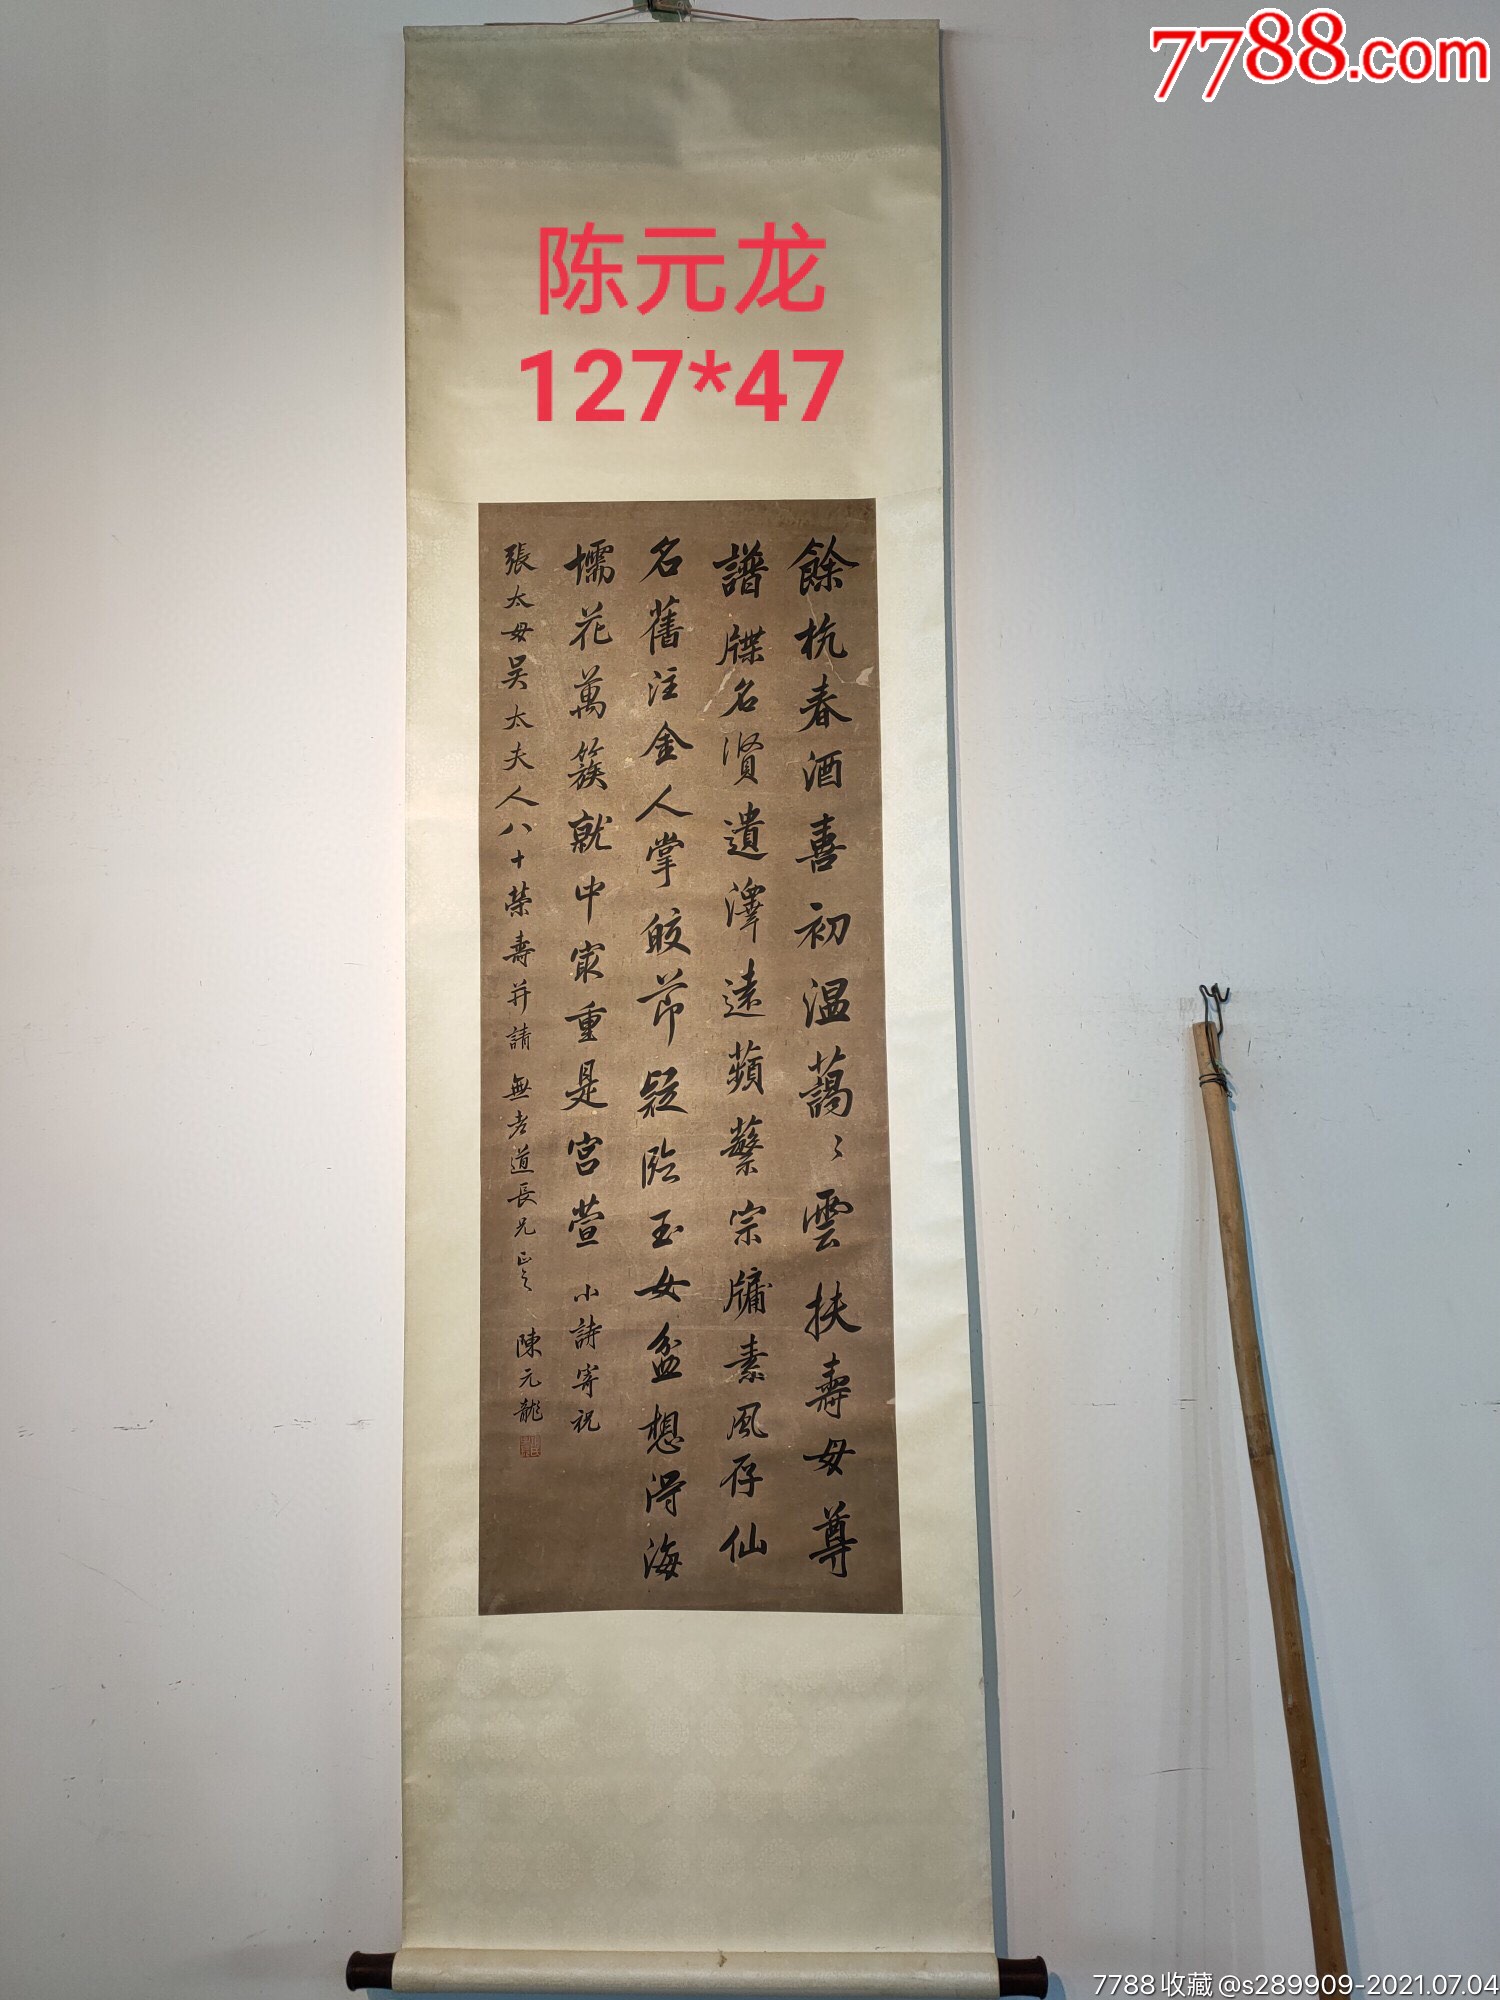 7788.com
陈元龙
127*47
餘杭春酒喜初温藹〻雲扶壽母尊
譜牒名賢遺澤遠蘋蘩宗牗素風存仙
名舊注金人掌皎節疑臨玉女盆想得海
壖花萬簇就中最重是宮萱 小詩寄祝
張太母吴太夫人八十榮壽并請 無考道長兄正之 陳元龍
7788收藏@s289909-2021.07.04